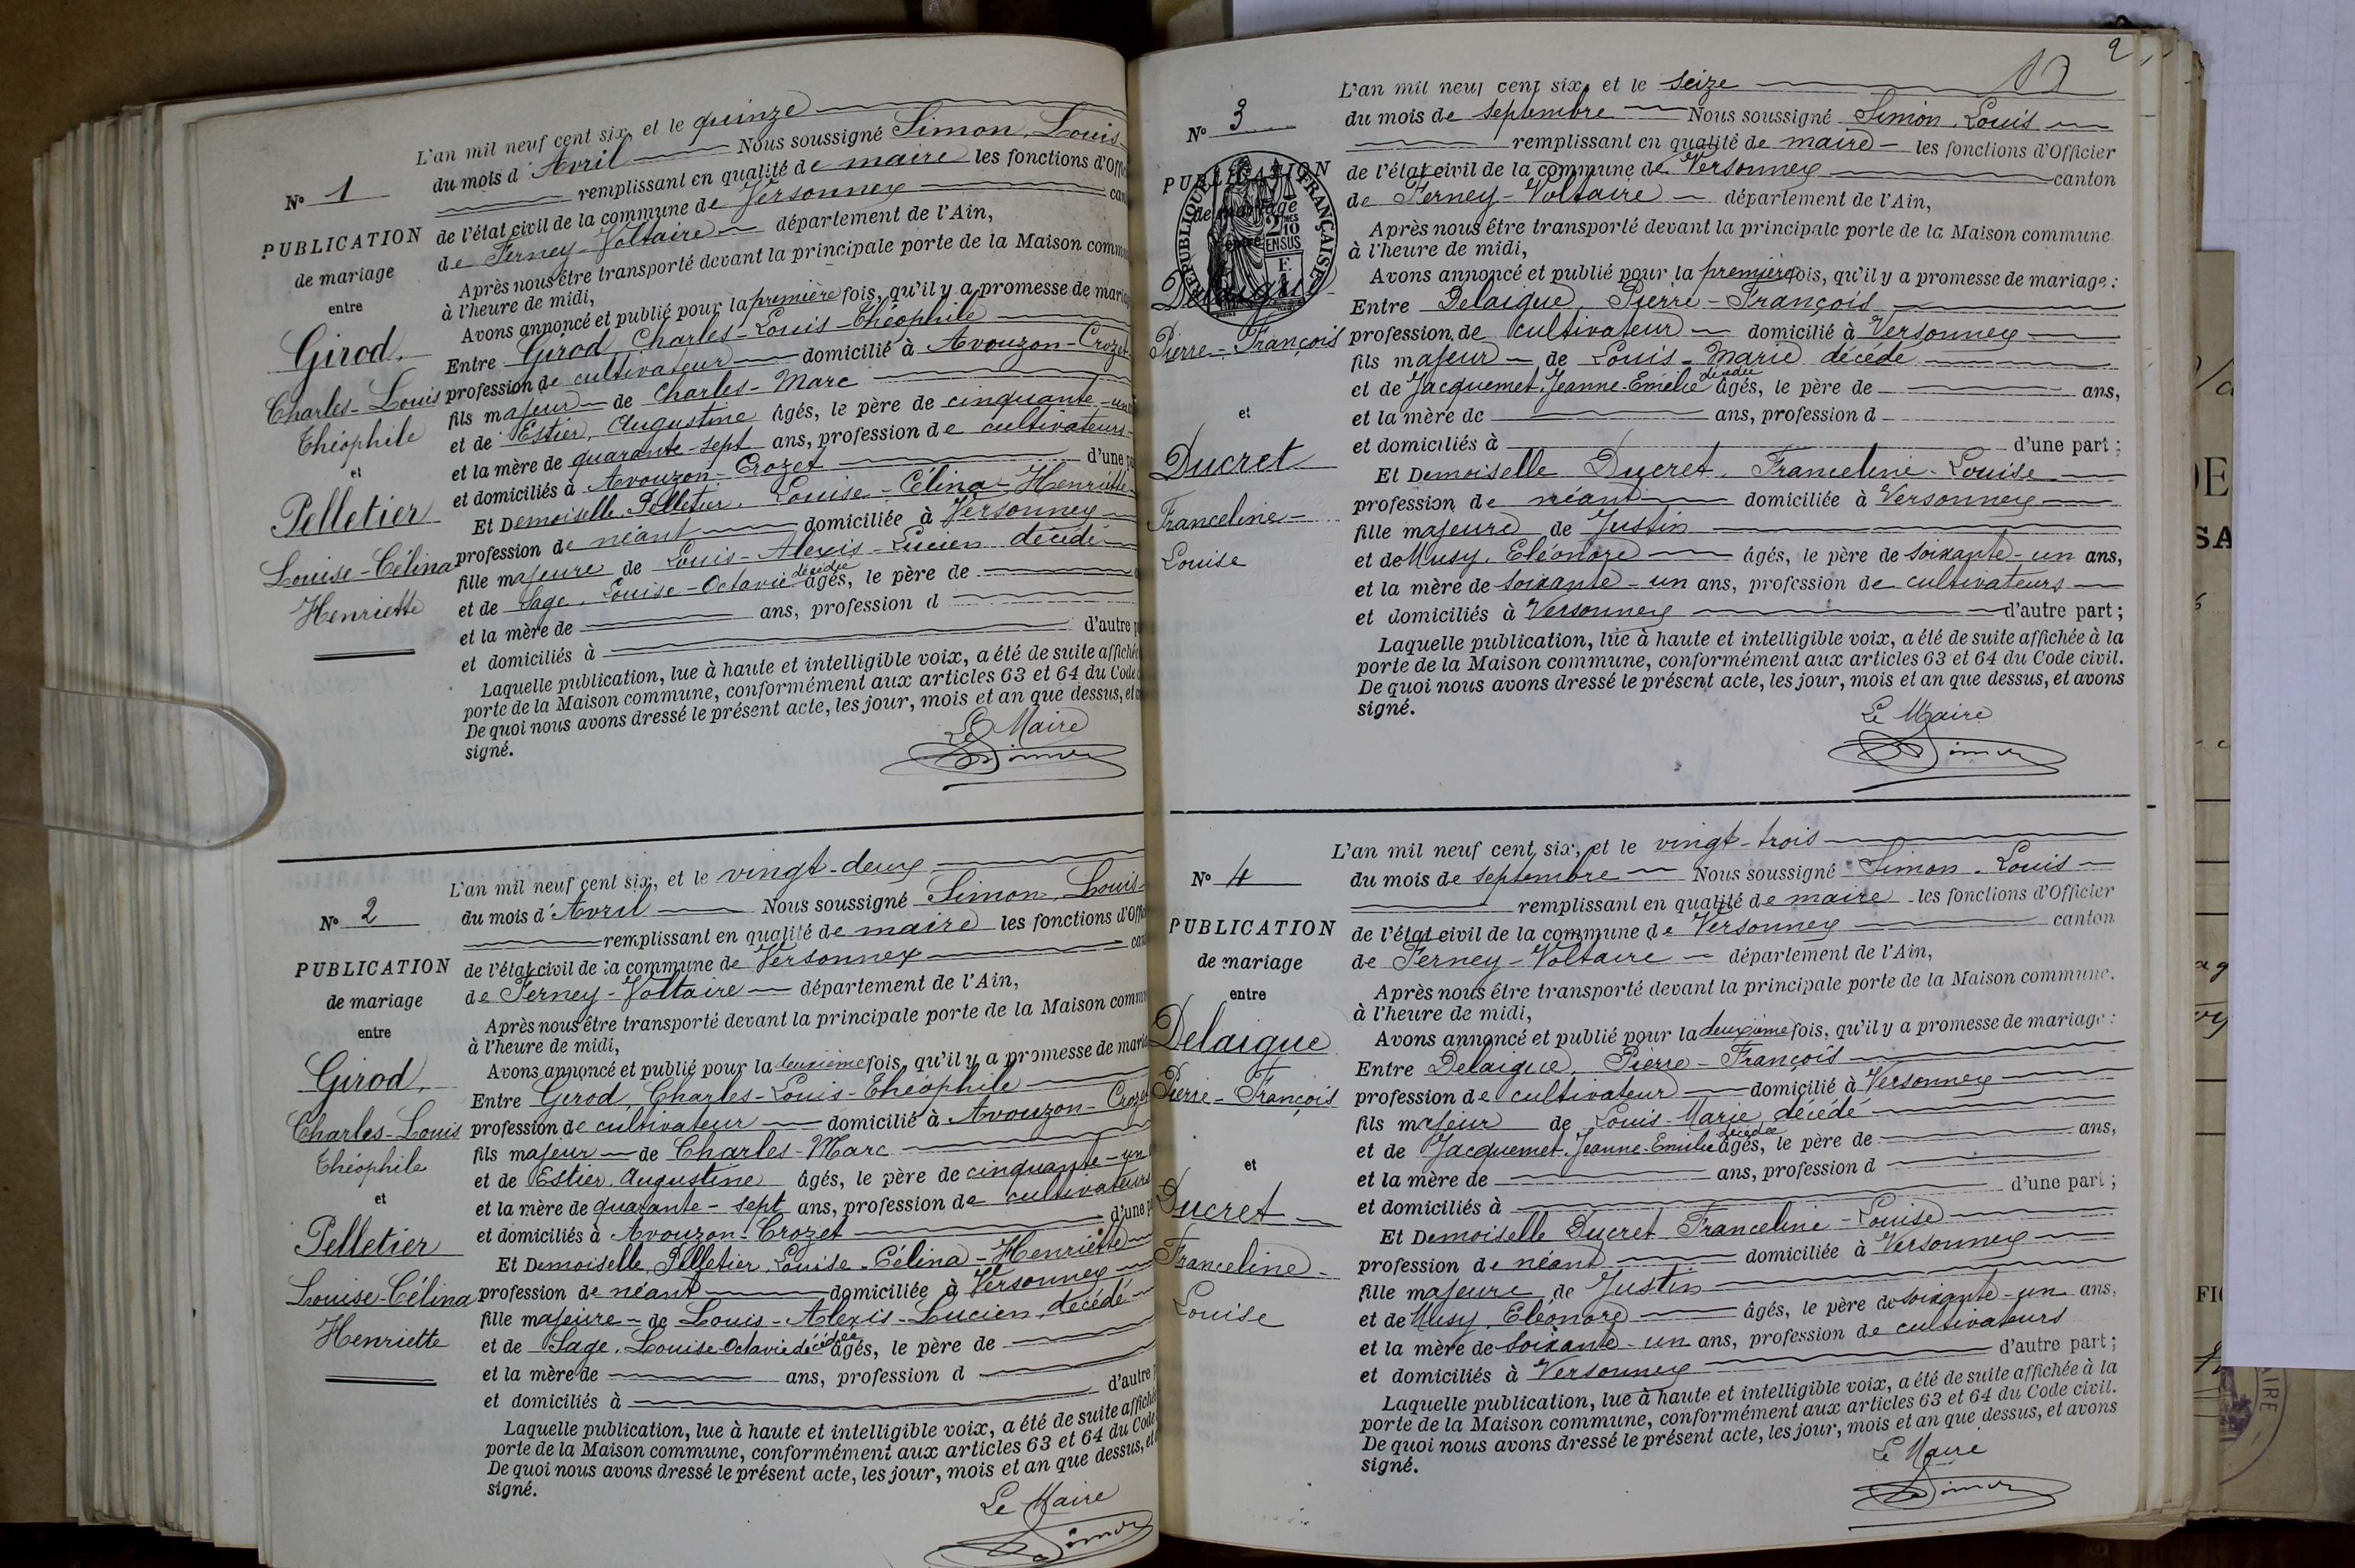 N° 1
PUBLICATION
de mariage
entre
Girod
Charles-Louis
Théophile
et
Pelletier
Louise-Célina
Henriette
L'an mil neuf cent six, et le quinze
du mois d'Avril Nous soussigné Simon, Louis
remplissant en qualité de maire les fonctions d'Offi
de l'état civil de la commune de Versonnex can
de Ferney-Voltaire département de l'Ain,
Après nous être transporté devant la principale porte de la Maison comm
à l'heure de midi,
Avons annoncé et publié pour la première fois, qu'il y a promesse de maria
Entre Girod, Charles-Louis-Théophile
profession de cultivateur domicilié à Avouzon-Crozet
fils majeur de Charles-Marc
et de Estier, Augustine âgés, le père de cinquante-un
et la mère de quarante-sept ans, profession de cultivateurs
et domiciliés à Avouzon-Crozet d'une pa
Et Demoiselle Pelletier, Louise-Célina-Henriette
profession de néant domiciliée à Versonnex
fille majeure de Louis-Alexis-Lucien décédé
et de Sage, Louise-Octavie décédée âgés, le père de
et la mère de ans, profession d
et domiciliés à d'autre p
Laquelle publication, lue à haute et intelligible voix, a été de suite affichée
porte de la Maison commune, conformément aux articles 63 et 64 du Code c
De quoi nous avons dressé le présent acte, les jour, mois et an que dessus, et a
signé.
Le Maire
Simon
N° 2
PUBLICATION
de mariage
entre
Girod,
Charles-Louis
Théophile
et
Pelletier
Louise-Célina
Henriette
L'an mil neuf cent six, et le vingt-deux
du mois d'Avril Nous soussigné Simon, Louis
remplissant en qualité de maire les fonctions d'Offi
de l'état civil de la commune de Versonnex can
de Ferney-Voltaire département de l'Ain,
Après nous être transporté devant la principale porte de la Maison comm
à l'heure de midi,
Avons annoncé et publié pour la deuxième fois, qu'il y a promesse de maria
Entre Girod, Charles-Louis-Théophile
profession de cultivateur domicilié à Avouzon-Crozet
fils majeur de Charles-Marc
et de Estier, Augustine âgés, le père de cinquante-un
et la mère de quarante-sept ans, profession de cultivateurs
et domiciliés à Avouzon-Crozet d'une p
Et Demoiselle Pelletier, Louise-Célina-Henriette
profession de néant domiciliée à Versonnex
fille majeure de Louis-Alexis-Lucien, décédé
et de Sage, Louise-Octavie décédée âgés, le père de
et la mère de ans, profession d
et domiciliés à d'autre p
Laquelle publication, lue à haute et intelligible voix, a été de suite affiché
porte de la Maison commune, conformément aux articles 63 et 64 du Code
De quoi nous avons dressé le présent acte, les jour, mois et an que dessus, et
signé.
Le Maire
Simon
2
N° 3
PUBLICATION
de mariage
entre
RÉPUBLIQUE FRANÇAISE
2/10
EN SUS
Delaigue
Pierre-François
et
Ducret
Franceline-
Louise
L'an mil neuf cent six, et le seize
du mois de septembre Nous soussigné Simon, Louis
remplissant en qualité de maire les fonctions d'Officier
de l'état civil de la commune de Versonnex canton
de Ferney-Voltaire département de l'Ain,
Après nous être transporté devant la principale porte de la Maison commune
à l'heure de midi,
Avons annoncé et publié pour la première fois, qu'il y a promesse de mariage :
Entre Delaigue, Pierre-François
profession de cultivateur domicilié à Versonnex
fils majeur de Louis-Marie décédé
et de Jacquemet, Jeanne-Emélie décédée âgés, le père de ans,
et la mère de ans, profession d
et domiciliés à d'une part ;
Et Demoiselle Ducret, Franceline-Louise
profession de néant domiciliée à Versonnex
fille majeure de Justin
et de Musy, Eléonore âgés, le père de soixante-un ans,
et la mère de soixante-un ans, profession de cultivateurs
et domiciliés à Versonnex d'autre part ;
Laquelle publication, lue à haute et intelligible voix, a été de suite affichée à la
porte de la Maison commune, conformément aux articles 63 et 64 du Code civil.
De quoi nous avons dressé le présent acte, les jour, mois et an que dessus, et avons
signé.
Le Maire
Simon
N° 4
PUBLICATION
de mariage
entre
Delaigue
Pierre-François
et
Ducret
Franceline-
Louise
L'an mil neuf cent six, et le vingt-trois
du mois de septembre Nous soussigné Simon, Louis
remplissant en qualité de maire les fonctions d'Officier
de l'état civil de la commune de Versonnex canton
de Ferney-Voltaire département de l'Ain,
Après nous être transporté devant la principale porte de la Maison commune,
à l'heure de midi,
Avons annoncé et publié pour la deuxième fois, qu'il y a promesse de mariage :
Entre Delaigue, Pierre-François
profession de cultivateur domicilié à Versonnex
fils majeur de Louis-Marie décédé
et de Jacquemet, Jeanne-Emélie décédée âgés, le père de ans,
et la mère de ans, profession d
et domiciliés à d'une part ;
Et Demoiselle Ducret Franceline-Louise
profession de néant domiciliée à Versonnex
fille majeure de Justin
et de Musy, Eléonore âgés, le père de soixante-un ans,
et la mère de soixante-un ans, profession de cultivateurs
et domiciliés à Versonnex d'autre part ;
Laquelle publication, lue à haute et intelligible voix, a été de suite affichée à la
porte de la Maison commune, conformément aux articles 63 et 64 du Code civil.
De quoi nous avons dressé le présent acte, les jour, mois et an que dessus, et avons
signé.
Le Maire
Simon